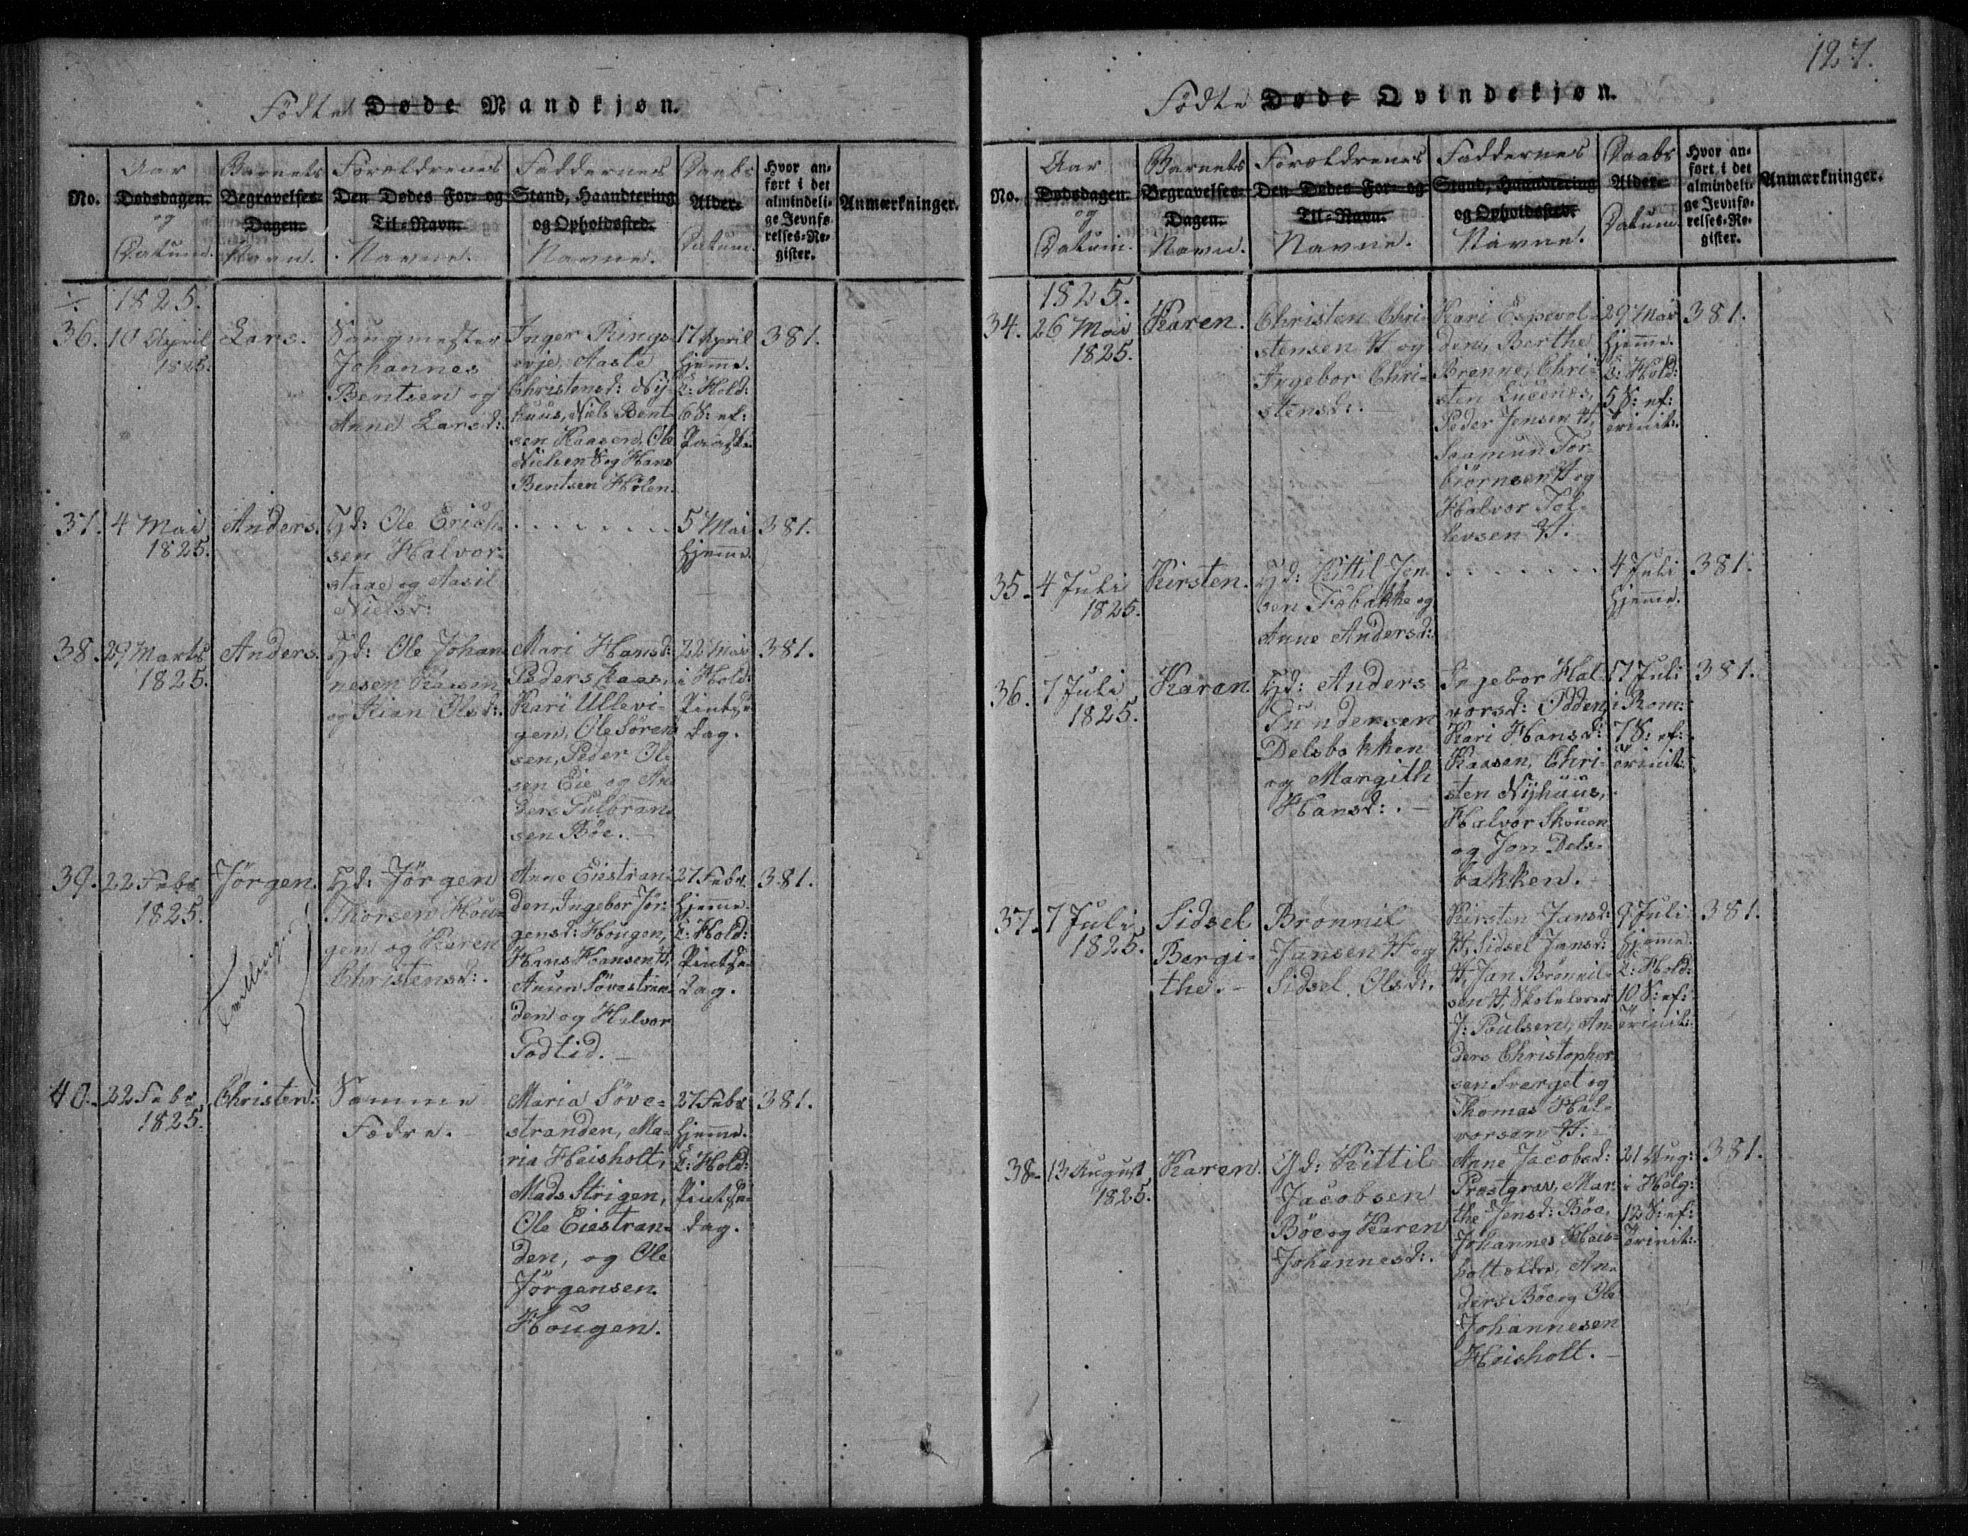 127.
Fødte Døde Mandkjøn.
No.
Aar
Dødsdagen.
og
Datum.
Barnets
Begravelses-
Dagen.
Navn.
Forældrenes
Den Dødes For- og
Til-Navn.
Navne.
Faddernes
Stand, Haandtering
og Opholdssted.
Navne.
Daabs
Alder.
Datum.
Hvor an-
ført i det
almindeli-
ge Jevnfø-
relses-Re-
gister.
Anmærkninger.
1825.
36.
10 April
1825.
Lars.
Saugmester
Johannes
Bentsen og
Anne Larsd:
Inger Rings
Aaste
Christensd: Nij-
huus, Niels Bent-
sen Kaasen, Ole
Nielsen S og Hans
Bentsen Hølen.
17 April
hjemme.
i Hold:
6 S: ef:
Paaske
381.
37.
4 Mai
1825.
Anders.
Gd: Ole Erich-
sen Halvor-
staae og Aasil
Nielsd:
5 Mai
hjemme.
381.
38.
29 Marts
1825.
Anders.
Gd: Ole Johan
nesen Kaasen
og Kian Olsd:
Mari Hansd:
Peders Kaas,
Kari Ullevi-
gen, Ole Søren
sen, Peder Ol-
sen Eie og An-
ders Gulbran
sen Bøe.
22 Mai
i Hold:
Pintse
dag.
381.
39.
22 Febr
1825.
Jørgen.
Tvillinger
Gd: Jørgen
Thorsen Hou-
gen og Karen
Christensd:
Anne Eiestran-
den, Ingebor Jør-
gensd: Hougen,
Hans Hansen H,
Anun Søvestran-
den og Halvor
Fodtid.
27 Febr
hjemme.
i Hold:
Pintse-
dag.
381.
40.
22 Febr
1825.
Christen.
Samme
Fædre.
Maria Søve-
stranden, Ma-
ria Heisholt,
Mads Strigen,
Ole Eiestran-
den, og Ole
Jørgensen
Hougen.
27 Febr
hjemme.
i Hold:
Pintse-
dag.
381.
Fødte Døde Qvindekjøn.
No.
Aar
Dødsdagen.
og
Datum.
Barnets
Begravelses-
Dagen.
Navn.
Forældrenes
Den Dødes For- og
Til-Navn.
Navne.
Faddernes
Stand, Haandtering
og Opholdssted.
Navne.
Daabs
Alder.
Datum.
Hvor an-
ført i det
almindeli-
ge Jevnfø-
relses-Re-
gister.
Anmærkninger.
1825.
34.
26 Mai
1825.
Karen.
Christen Chri-
stensen H og
Ingebor Chri-
stensd:
Kari Espevol-
den, Berthe
Brenne, Chri-
sten Lucenes,
Peder Jensen H,
Saamun Tor-
biörnsen H og
Halvor Tol-
levsen H.
29 Mai
hjemme.
i Hold:
5 S: ef:
Trinit:
381.
35.
4 Juli
1825.
Kirsten.
Gd: Kittil Jen-
sen Fobakke og
Anne Andersd:
4 Juli
hjemme.
381.
36.
7 Juli
1825.
Karan
Gd: Anders
Gundersen
Delsbakken
og Margith
Hansd:
Ingebor Hal-
vorsd: Odden,
Kari Hansd:
Kaasen, Chri-
sten Nijhuus,
Halvor Skouen
og Jon Dels-
bakken.
17 Juli
i Rom:
7 S: ef:
Trinit:
381.
37.
7 Juli
1825.
Sidsel
Bergi-
the.
Brønnil
Jansen H og
Sidsel Olsd:
Kirsten Jansd:
H, Sidsel Jansd:
H, Jan Brønnil-
sen H, Skolelærer
J: Poulsen, An-
ders Christopher
sen Sverget og
Thomas Hal-
vorsen H:
9 Juli
hjemme.
i Hold:
10 S: ef:
Trinit:
381.
38.
13 August
1825.
Karen.
Gd: Kittil
Jacobsen
Bøe og Karen
Johannesd:
Anne Jacobsd:
Præstgrav, Mar-
the Jensd: Bøe,
Johannes Heis-
holt ældre, An-
ders Bøe og Ole
Johannesen
Heisholt.
21 Aug:
i Helg:
12 S: ef:
Trinit:
381.